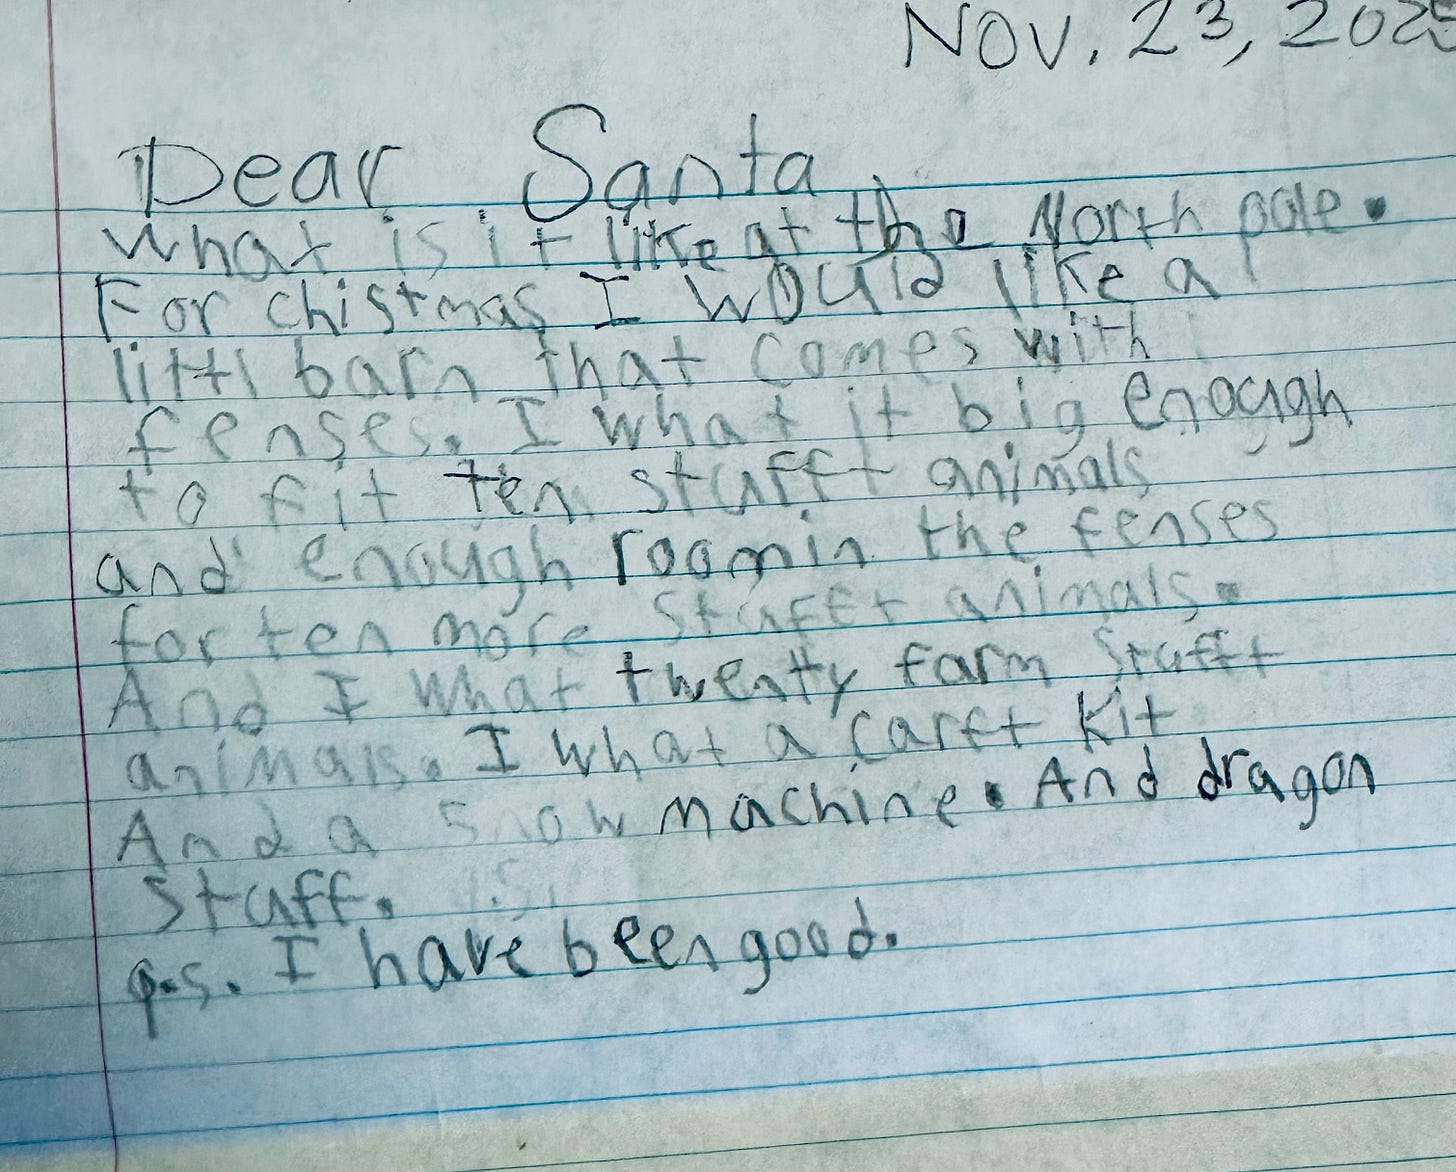 Nov. 23, 202
Dear Santa
What is it like at the North pole.
For chistmas I would like a
littl barn that comes with
fenses. I what it big enough
to fit ten stufft animals
and enough room in the fenses
for ten more stufft animals.
And I what twenty farm stufft
animals. I what a carft kit
And a snow machine. And dragon
stuff.
p.s. I have been good.